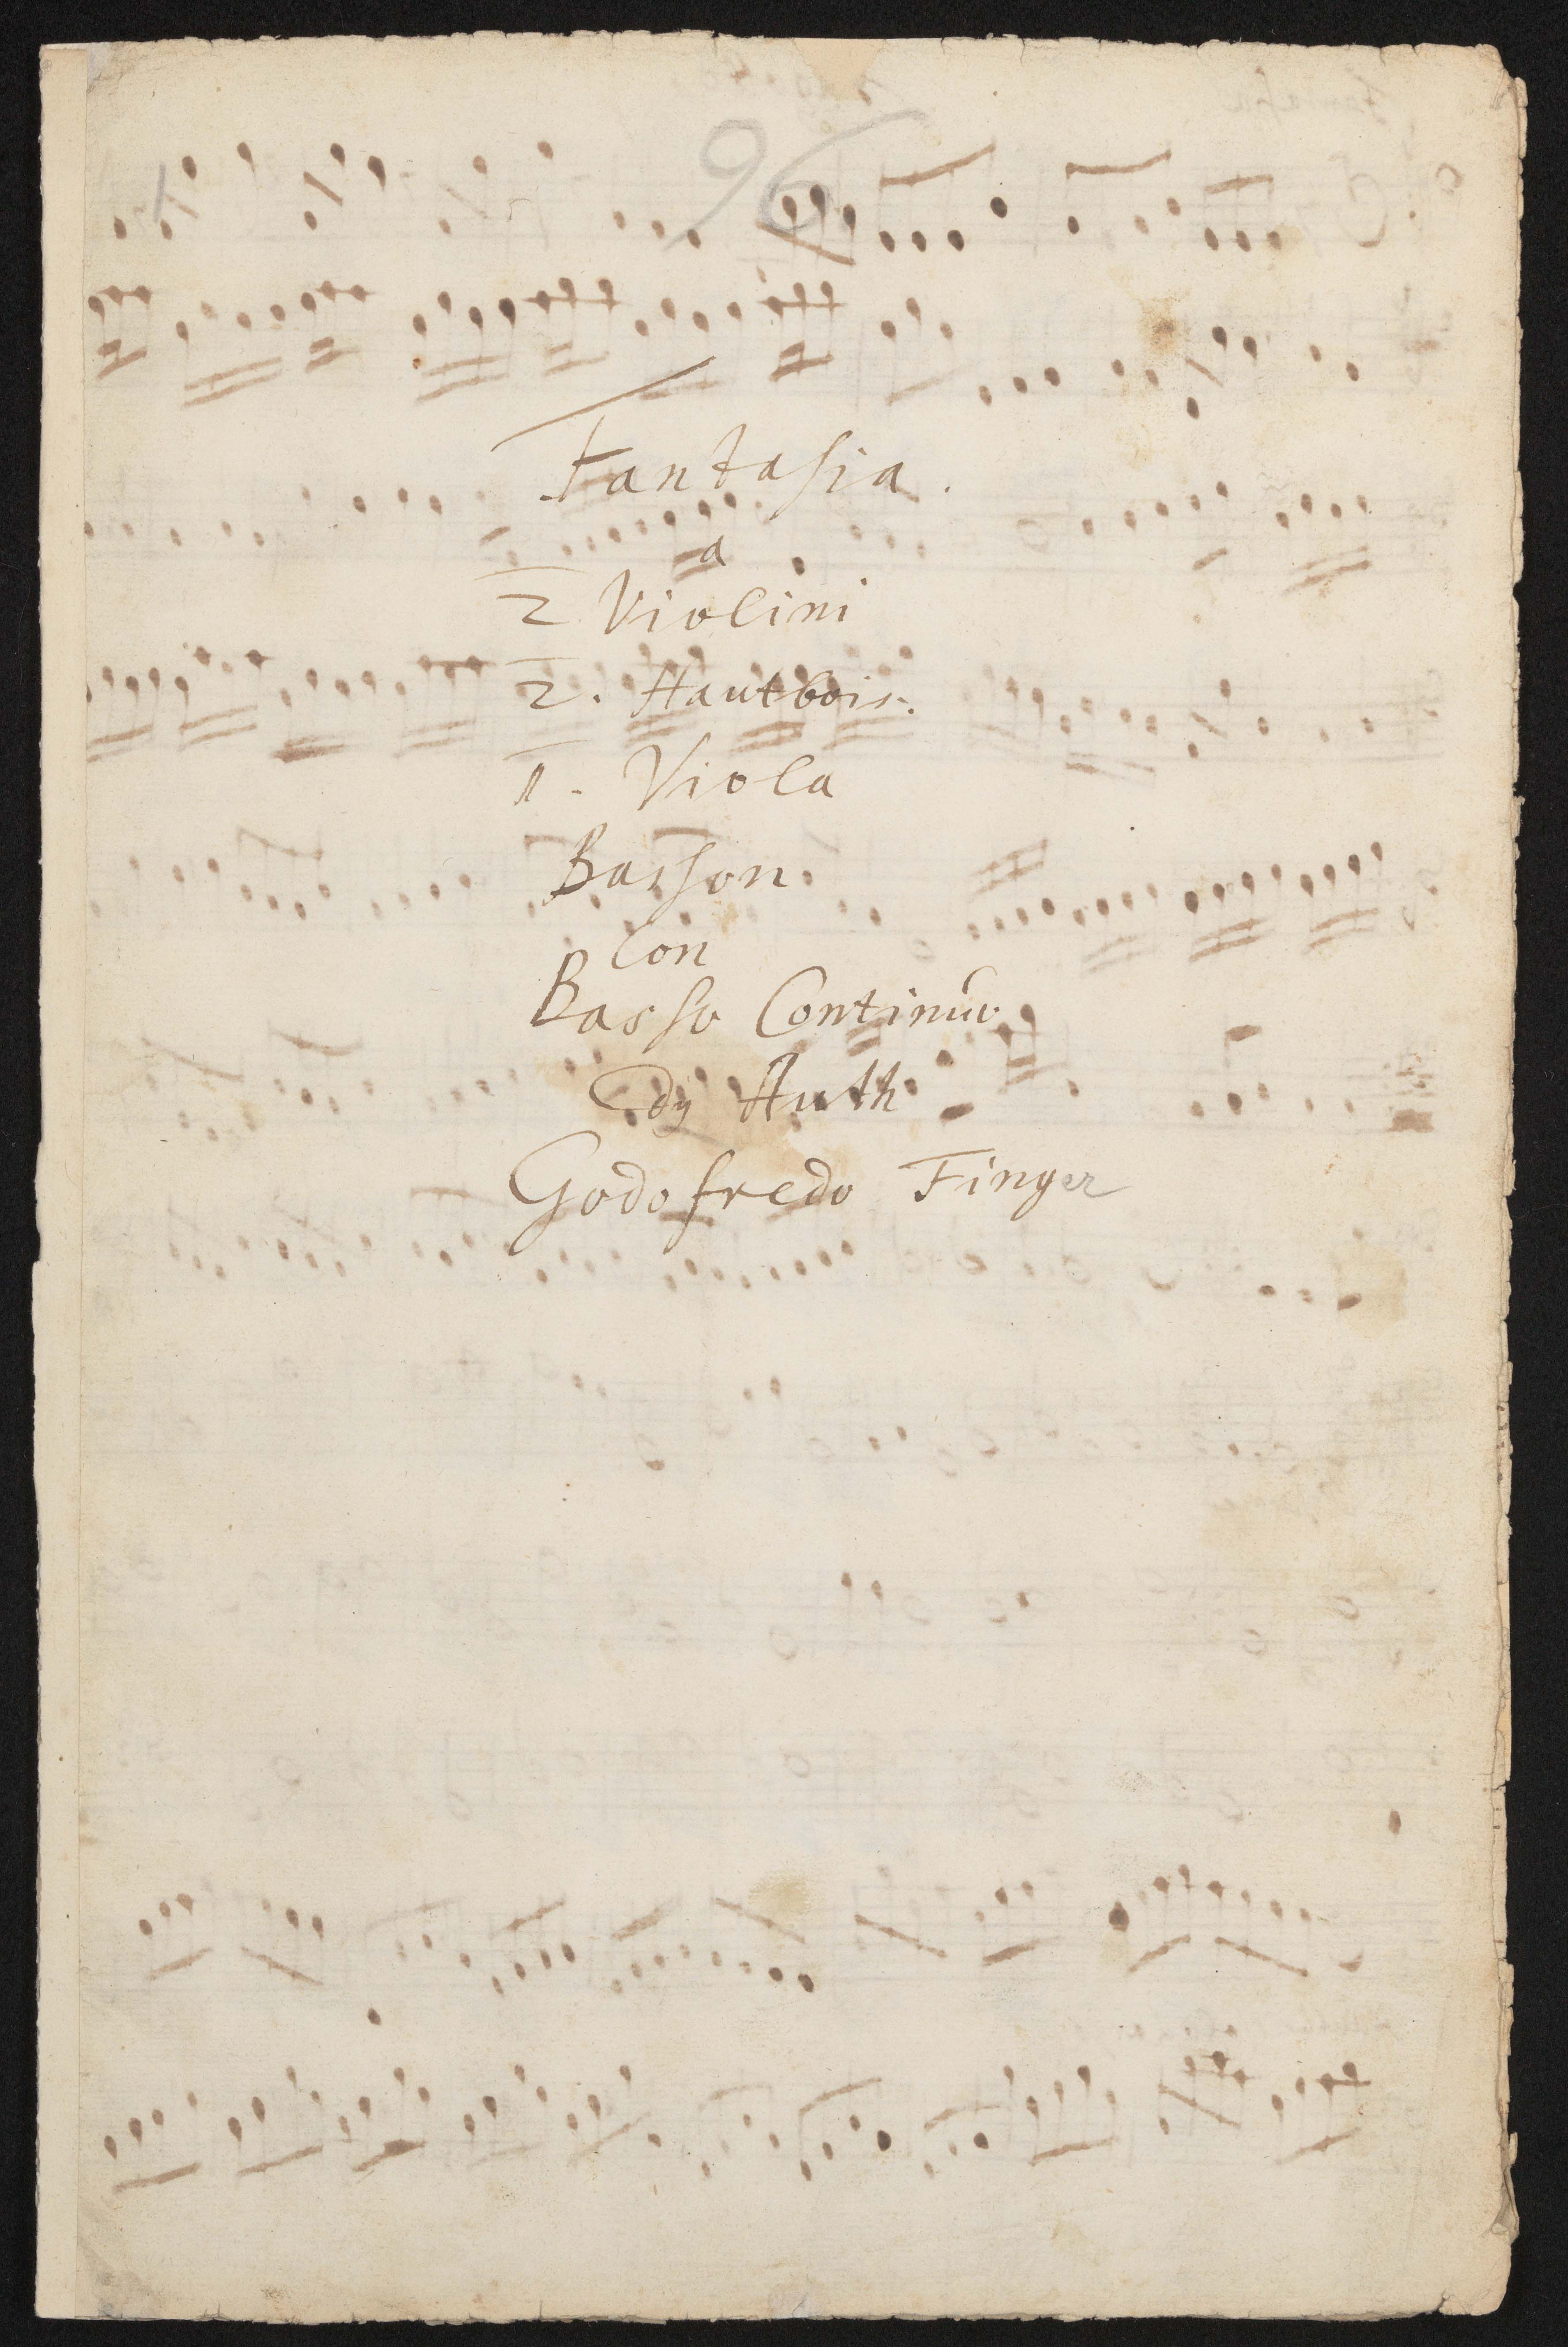 96
Fantasia.
a
2 Violini
2. Hautbois.
1. Viola
Basson.
Con
Basso Continuo
Auth
Godofredo Finger